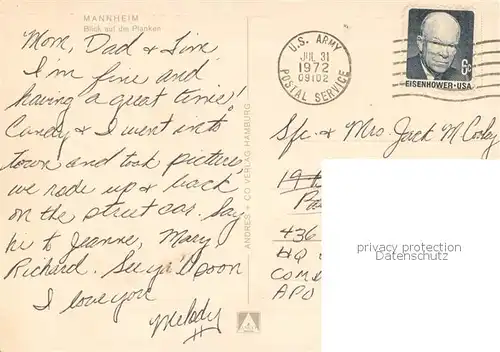 MANNHEIM
Blick auf die Planken
Mom, Dad & Tim
I'm fine and
having a great time!
Candy & I went into
town and took pictures
we rode up & back
on the street car. Say
hi to Jeanne, Mary
Richard. See ya'll soon
I love you
Melody
ANDRES + CO VERLAG HAMBURG
U.S. ARMY
JUL 31
1972
09102
POSTAL SERVICE
6¢
EISENHOWER·USA
Sfc. & Mrs. Jack M
436
HQ
COM
APO
privacy protection
Datenschutz